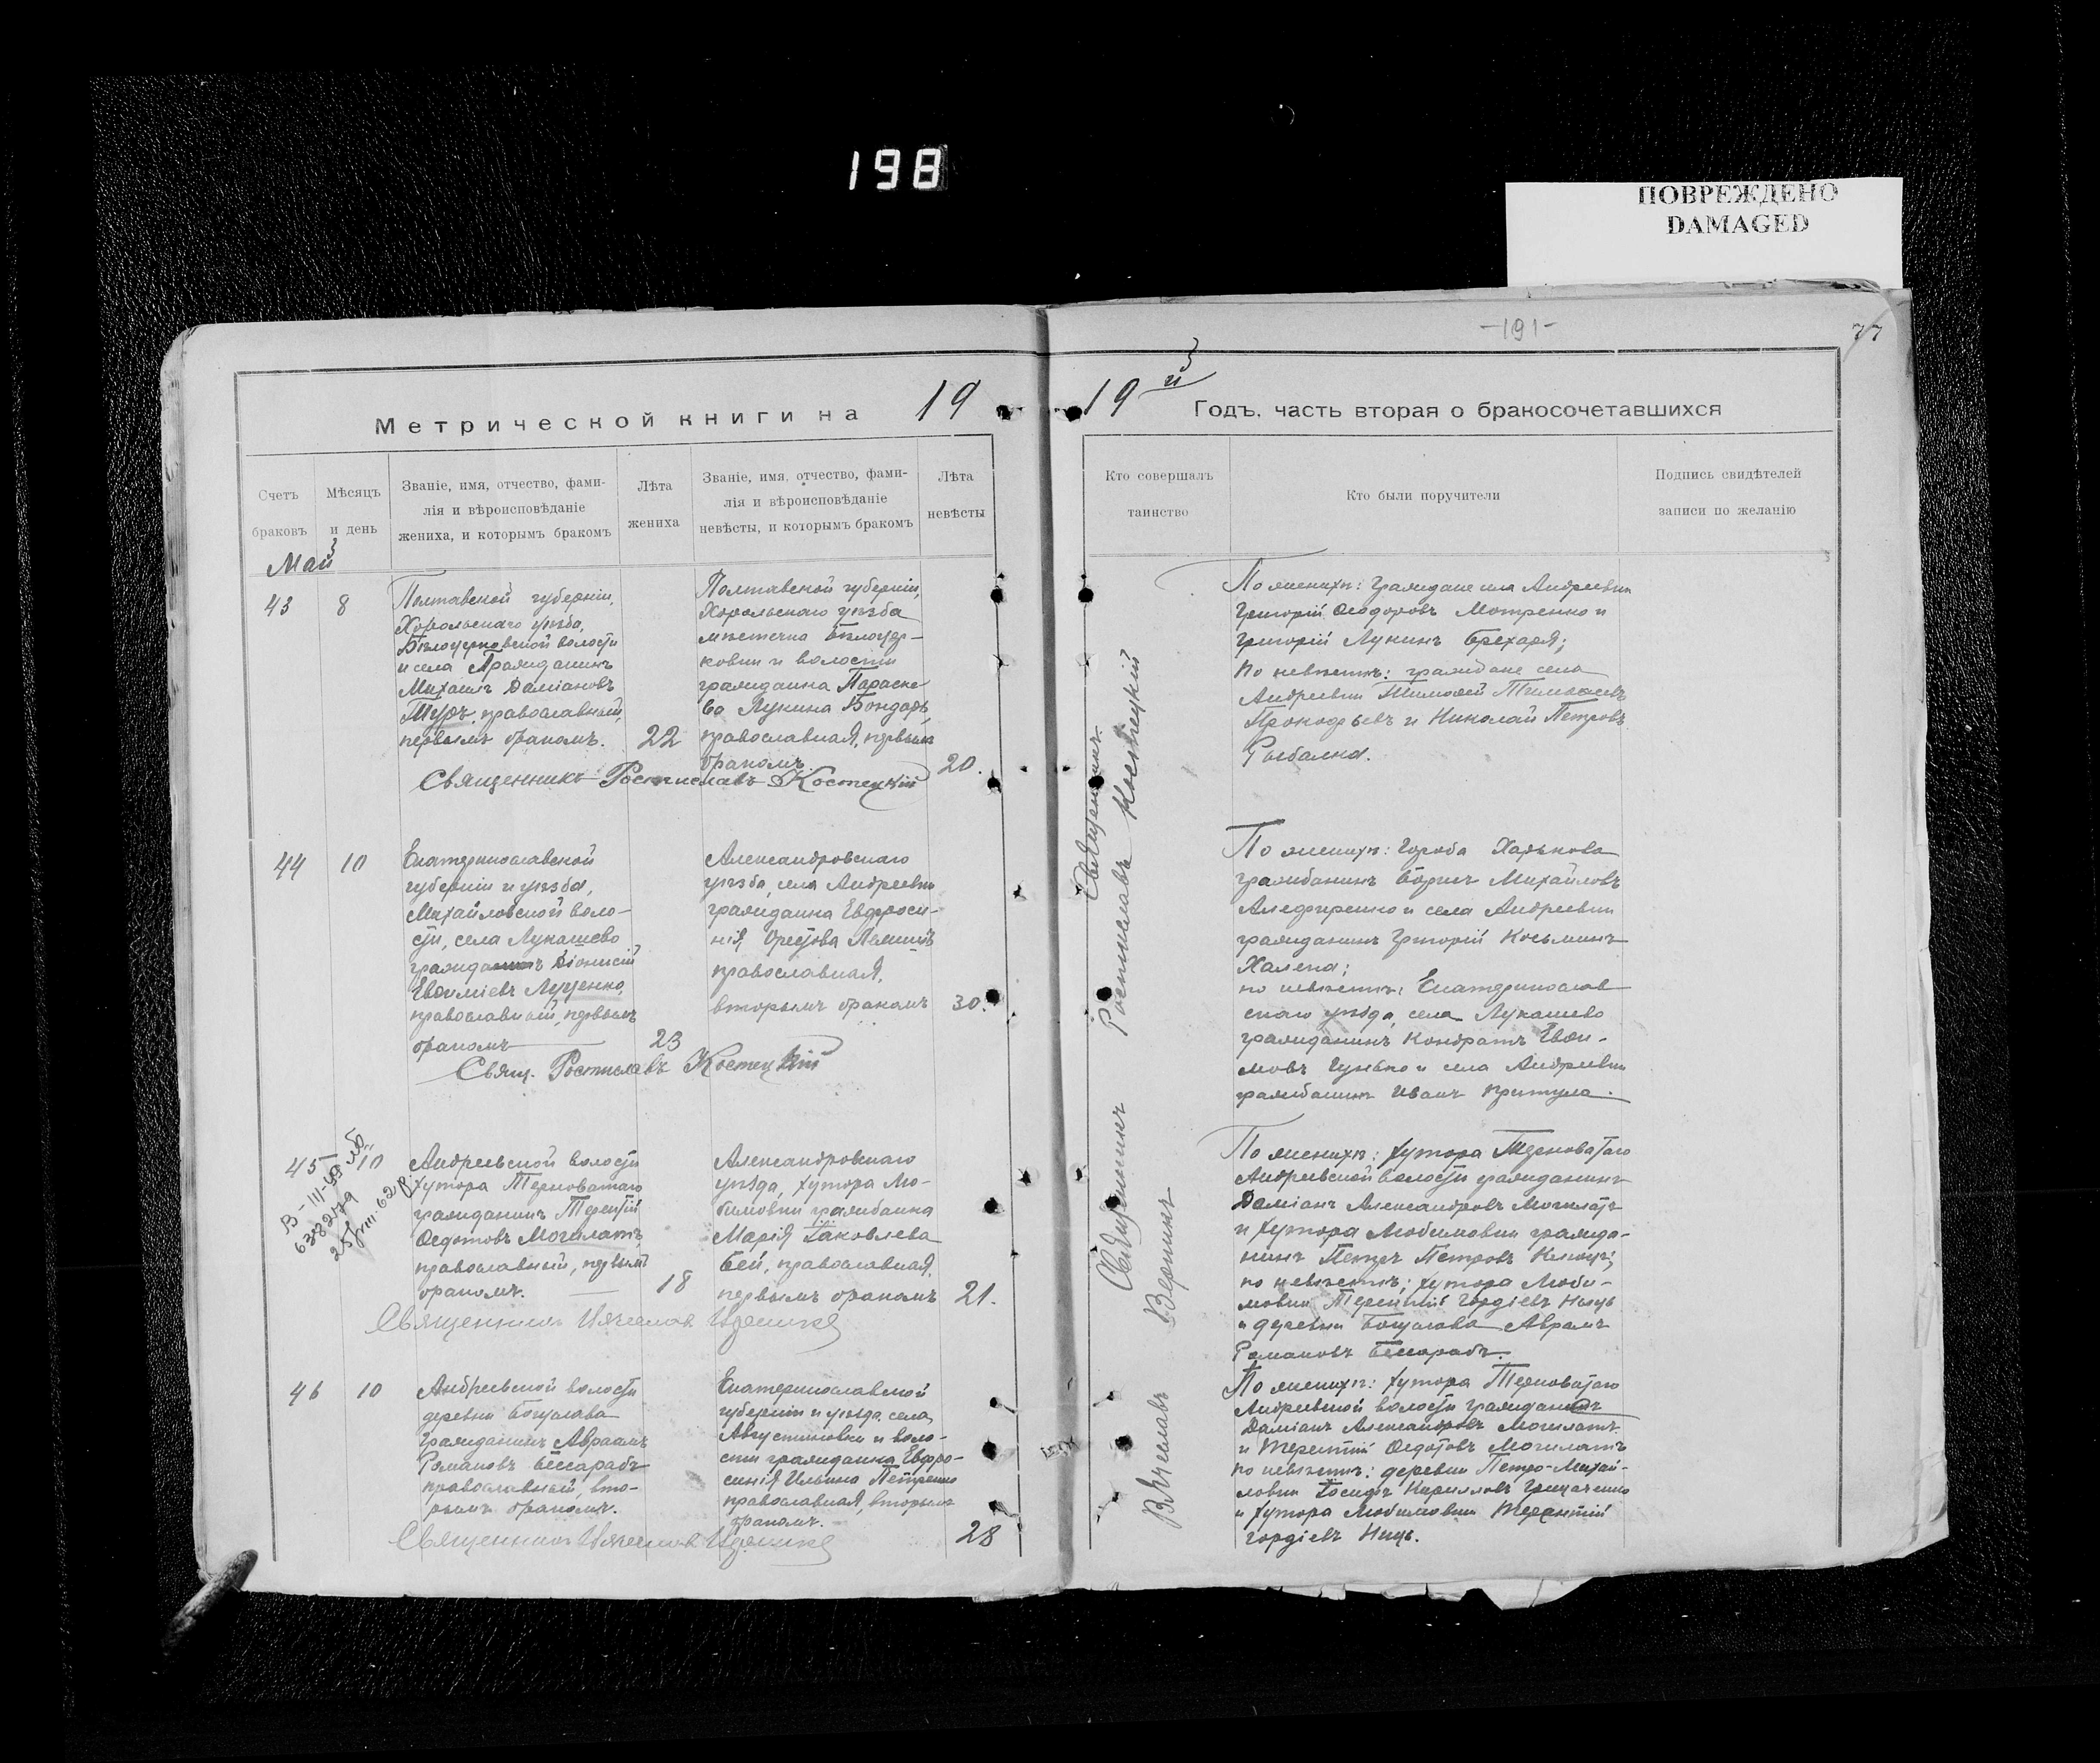 198
ПОВРЕЖДЕНО
DAMAGED
-191-
77
Метрической книги на 19
19 Годъ, часть вторая о бракосочетавшихся
Счетъ
браковъ
Мѣсяцъ
и день
Званіе, имя, отчество, фами-
лія и вѣроисповѣданіе
жениха, и которымъ бракомъ
Лѣта
жениха
Званіе, имя, отчество, фами-
лія и вѣроисповѣданіе
невѣсты, и которымъ бракомъ
Лѣта
невѣсты
Кто совершалъ
таинство
Кто были поручители
Подпись свидѣтелей
записи по желанію
Май
43
8
Полтавской губерніи,
Хорольскаго уѣзда,
Бѣлоцерковской волости
и села Гражданинъ
Михаилъ Даміановъ
Шуръ, православный,
первымъ бракомъ.
22
Полтавской губерніи,
Хорольскаго уѣзда
мѣстечка Бѣлоцер-
ковки и волости
гражданка Параске-
ва Лукина Бондарь,
православная, первымъ
бракомъ
20.
Священникъ Ростиславъ Костецкій
По женихѣ: Граждане села Андреевки
Григорій Ѳеодоровъ Мотренко и
Григорій Лукинъ Брехаря;
По невѣстѣ: граждане села
Андреевки Тимоѳей Тимоѳеевъ
Прокофьевъ и Николай Петровъ
Рыбалка.
44
10
Екатеринославской
губерніи и уѣзда,
Михайловской воло-
сти, села Лукашево
гражданинъ Діонисій
Евѳиміевъ Луценко,
православный, первымъ
бракомъ
23
Александровскаго
уѣзда, села Андреевки
гражданка Евфроси-
нія Орестова
православная,
вторымъ бракомъ
30.
Свящ. Ростиславъ Костецкій
По женихѣ: Города Харькова
гражданинъ Борисъ Михайловъ
и села Андреевки
гражданинъ Григорій Косьминъ
Халепа;
по невѣстѣ: Екатеринослав
скаго уѣзда, села Лукашево
гражданинъ Кондратъ Евѳи-
мовъ Гунько и села Андреевки
гражданинъ Иванъ Притула.
45
10
Андреевской волости
хутора Терноватаго
гражданинъ Терентій
Ѳедотовъ Могилатъ,
православный, первымъ
бракомъ.
18
Александровскаго
уѣзда, хутора Лю-
бимовки гражданка
Марія Іаковлева
Бей, православная,
первымъ бракомъ
21.
Священникъ Вячеслав
По женихѣ: хутора Терноватаго
Андреевской волости гражданинъ
Даміанъ Александровъ Могилатъ
и хутора Любимовки гражда-
нинъ Петръ Петровъ
по невѣстѣ: хутора Люби-
мовки Терентій Гордіевъ Нищъ
и деревни Богуслава Аврамъ
Романовъ Бессарабъ.
46
10
Андреевской волости
деревни Богуслава
Гражданинъ Авраамъ
Романовъ Бессарабъ
православный, вто-
рымъ бракомъ.
Екатеринославской
губерніи и уѣзда, села
Августиновки и воло-
сти гражданка Евфро-
синія Ильина Петренко
православная, вторымъ
бракомъ.
28
Священникъ Вячеслав
По женихѣ: хутора Терноватаго
Андреевской волости гражданинъ
Даміанъ Александровъ Могилатъ
и Терентій Ѳедотовъ Могилатъ
по невѣстѣ: деревни Петро-Михай-
ловки Іосифъ Кирилловъ Грицаченко
и хутора Любимовки Терентій
Гордіевъ Нищъ.
Священникъ
Ростиславъ Костецкій
Священникъ
Вячеславъ